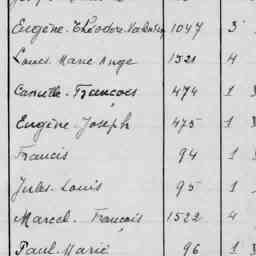 Eugène-Théodore-Valentin 1047 3
Louis Marie Ange 1321 4
Camille-François 474 1
Eugène-Joseph 475 1
Francis 94 1
Jules-Louis 95 1
Marcel-François 1522 4
Paul-Marie 96 1